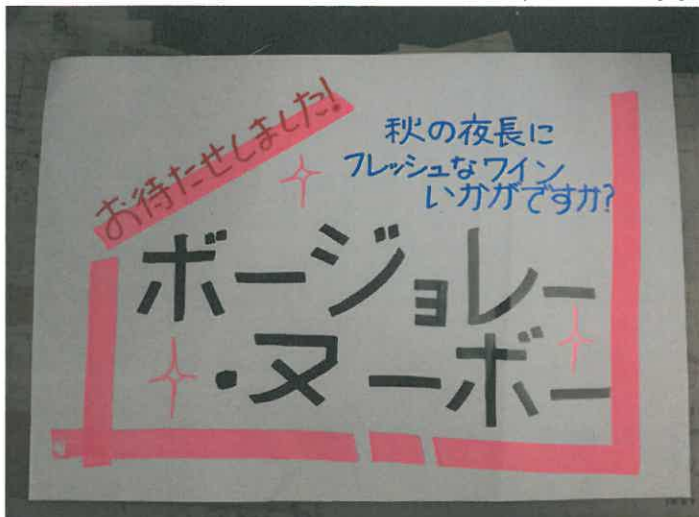 お待たせしました!
秋の夜長に
フレッシュなワイン
いかがですか?
ボージョレー
・ヌーボー